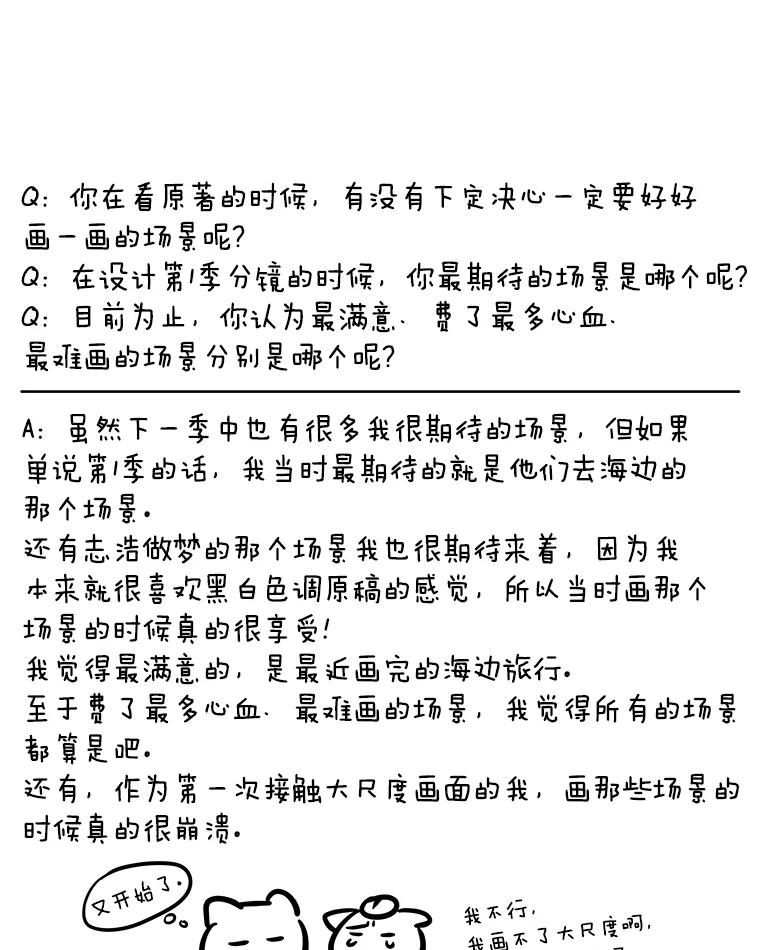 Q: 你在看原著的时候, 有没有下定决心一定要好好
画一画的场景呢?
Q: 在设计第1季分镜的时候, 你最期待的场景是哪个呢?
Q: 目前为止, 你认为最满意、费了最多心血、
最难画的场景分别是哪个呢?
A: 虽然下一季中也有很多我很期待的场景, 但如果
单说第1季的话, 我当时最期待的就是他们去海边的
那个场景。
还有志浩做梦的那个场景我也很期待来着, 因为我
本来就很喜欢黑白色调原稿的感觉, 所以当时画那个
场景的时候真的很享受!
我觉得最满意的, 是最近画完的海边旅行。
至于费了最多心血、最难画的场景, 我觉得所有的场景
都算是吧。
还有, 作为第一次接触大尺度画面的我, 画那些场景的
时候真的很崩溃。
又开始了.
我不行,
我画不了大尺度啊,